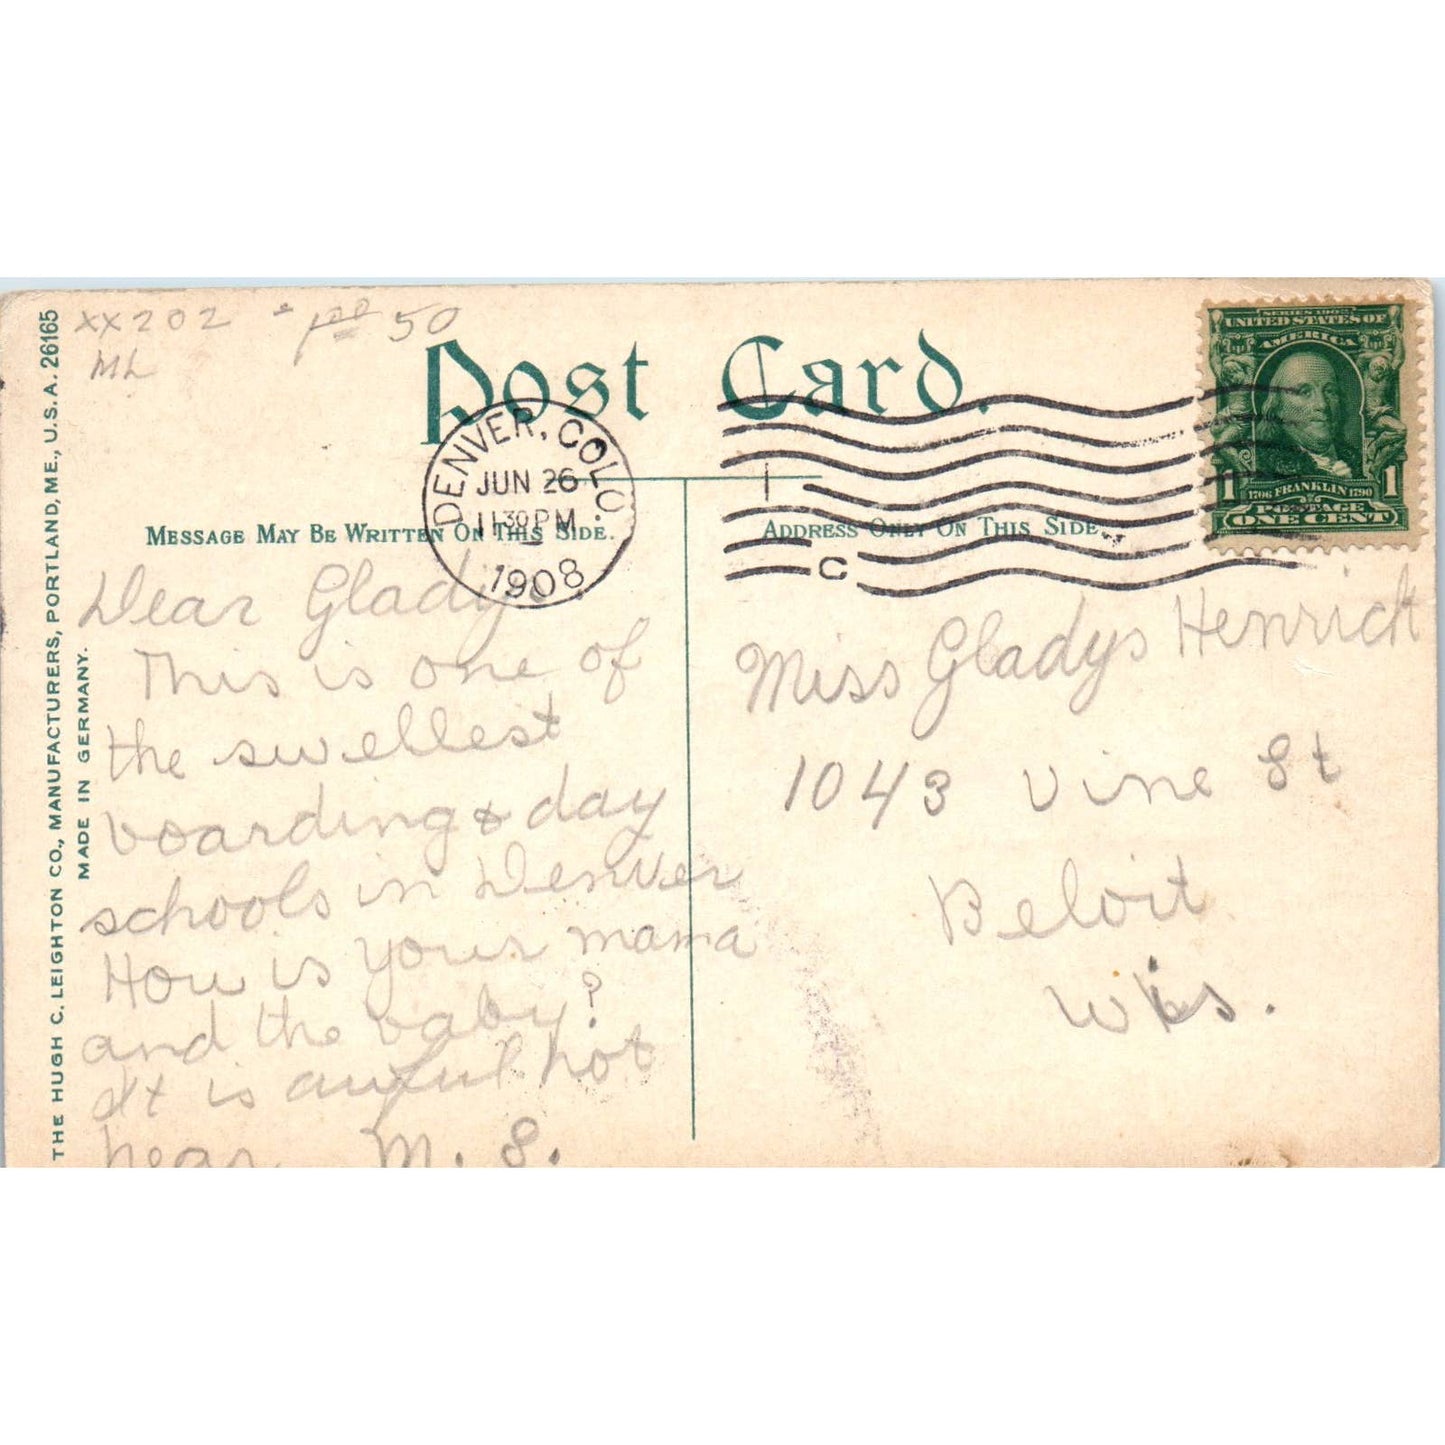 XX202 100 50
ML
Post Card.
DENVER, COLO.
JUN 26
11 30 PM
1908
C
SERIES 1902
UNITED STATES OF
AMERICA
1 1
1706 FRANKLIN 1790
POSTAGE
ONE CENT
MESSAGE MAY BE WRITTEN ON THIS SIDE.
ADDRESS ONLY ON THIS SIDE
THE HUGH C. LEIGHTON CO., MANUFACTURERS, PORTLAND, ME., U.S.A. 26165
MADE IN GERMANY.
Dear Gladys.
This is one of
the swellest
boarding & day
schools in Denver
How is your mama
and the baby?
It is awful hot
hear M. S.
Miss Gladys Henrick
1043 Vine St
Beloit
Wis.